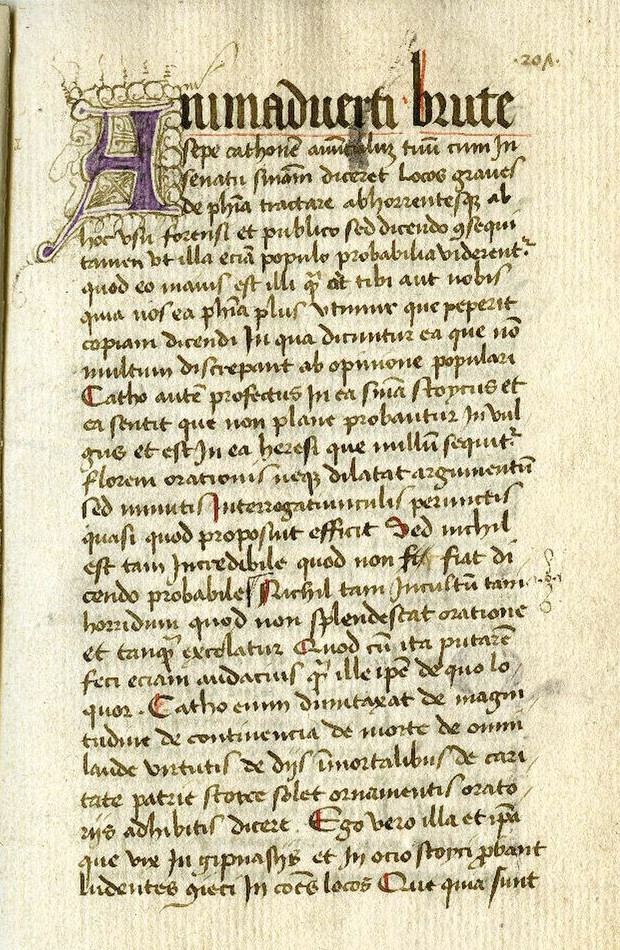 ·201·
Animaduerti brute
sepe cathonē auūculuȝ tuū cum In
senatu snīam diceret locos graues
de phīa tractare abhorrentesqȝ ab
hoc vsu forensi et publico sed dicendo ꝯsequi
tamen vt illa eciā populo probabilia viderent᷑
quod eo maius est illi qͣ̄ aut tibi aut nobis
quia nos ea phīa plus vtimur que peperit
copiam dicendi In qua dicuntur ea que nō
multum discrepant ab opinione populari
Catho autē profectus In ea snīa stoycus et
ea sentit que non plane probantur In vul
gus et est In ea heresi que nullū sequit᷑
florem orationis neqȝ dilatat argumentū
sed minutis Interrogatiunculis perunctis
quasi quod proposuit efficit Sed nichil
est tam Incredibile quod non fiat di
cendo probabile Nichil tam Incultū tam
horridum quod non splendescat oratione
et tanqͣ̄ excolatur Quod cū ita putarē
feci eciam audacius qͣ̄ ille ip̄e de quo lo
quor. Catho enim dumtaxat de magni
tudine de continencia de morte de omni
laude virtutis de dijs īmortalibus de cari
tate patrie stoyce solet ornamentis orato
riis adhibitis dicere. Ego vero illa et ip̄a
que vix In gipnasijs et In ocio stoyci ꝓbant
ludentes ꝯieci In cōes locos Que quia sunt